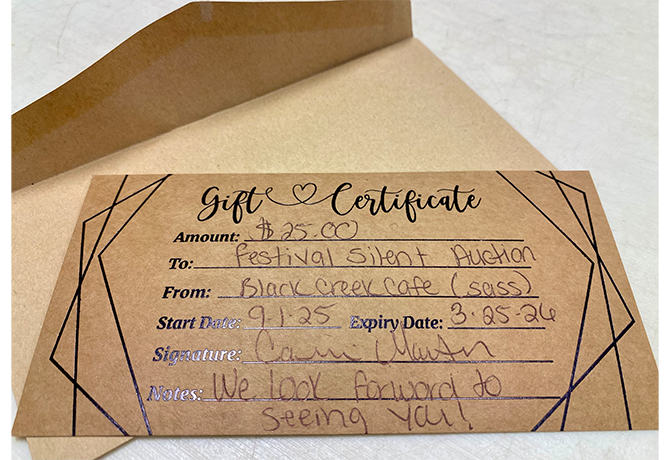 Gift Certificate
Amount: $25.00
To: Festival Silent Auction
From: Black Creek Cafe (seiss)
Start Date: 9-1-25 Expiry Date: 3-25-26
Signature:
Notes: We look forward to
seeing you!